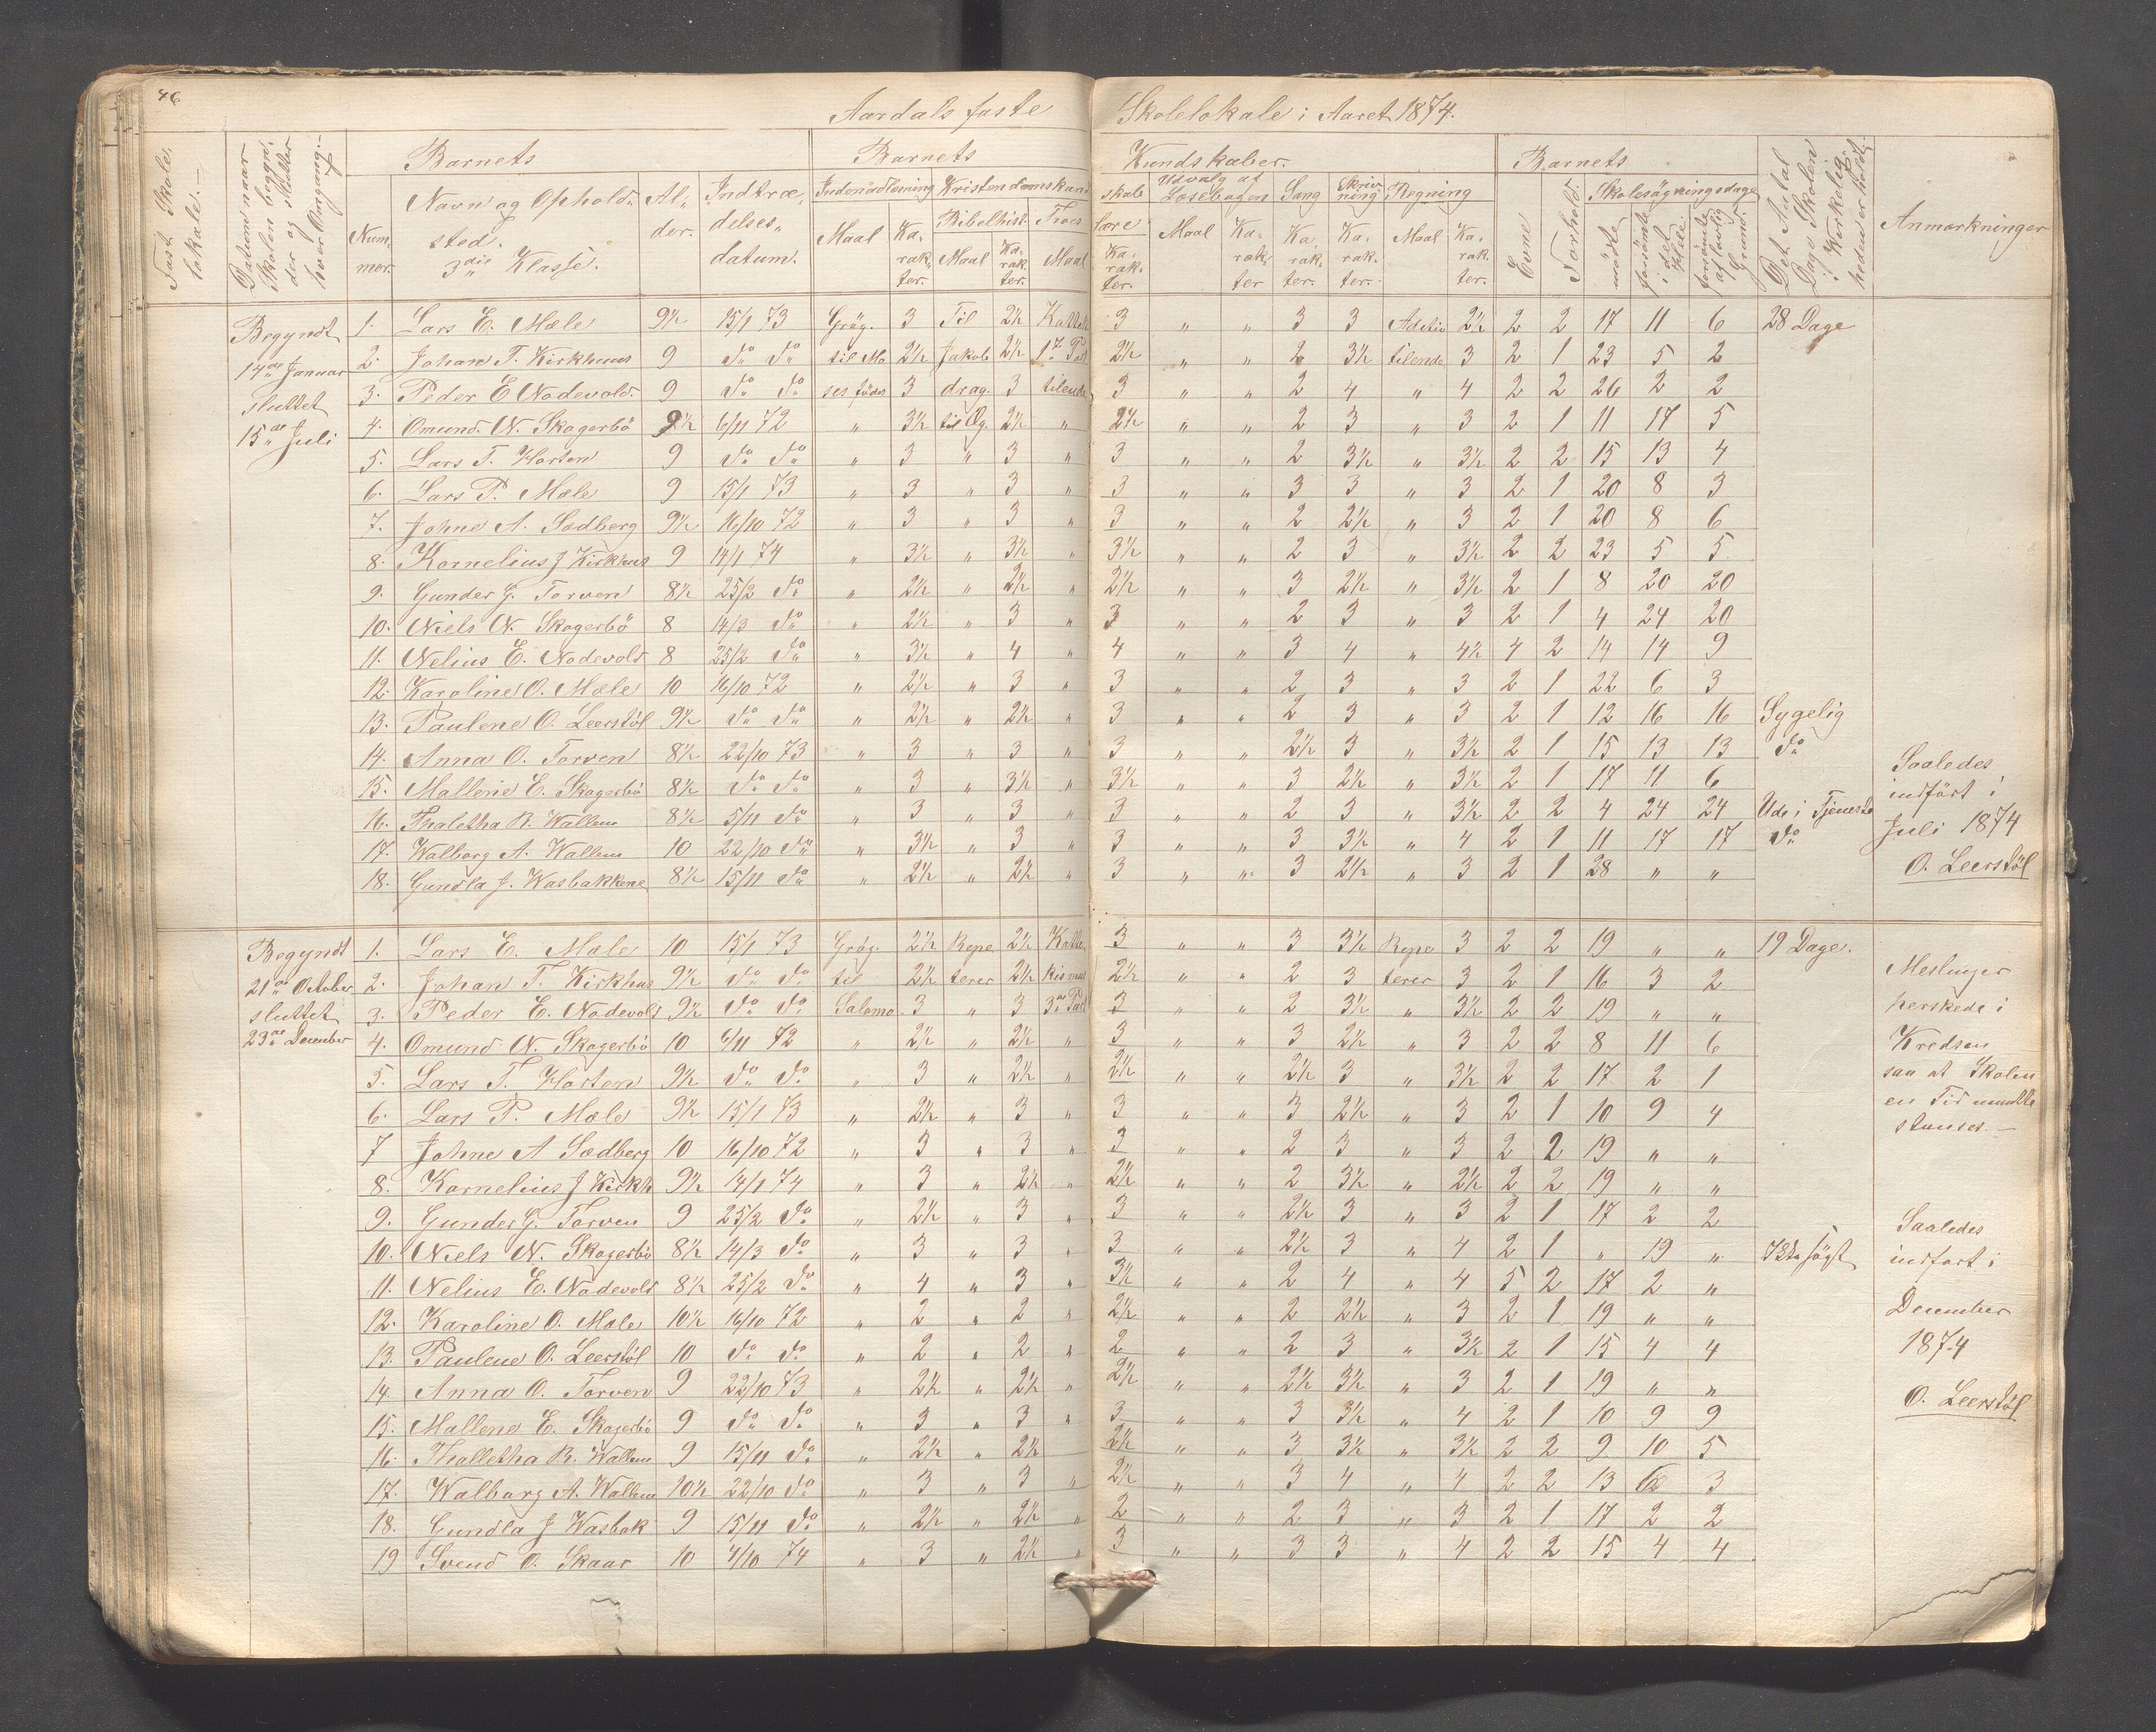 46
Aardals faste Skolelokale i Aaret 1874.
Fast Skolelokale.
Datum naar Skolen begynder og slutter hver Omgang.
Barnets
Nummer.
Navn og Opholdssted.
3die Klasse.
Alder.
Indtrædelsesdatum.
Barnets Kundskaber.
Indenadlæsning Kristendomskundskab
Maal Karakter.
Bibelhist. Maal Karakter.
Troeslære Maal Karakter.
Udvalg af Læsebogen Maal Karakter
Sang Karakter.
Skrivning Karakter.
Regning Maal Karakter.
Barnets
Evne
Forhold.
Skolesøgningsdage
mødte
forsømte i det Hele
forsømte af lovlig Grund.
Det Antal Dage Skolen i Virkeligheden er holdt.
Anmærkninger
Begyndt 14de Januar sluttet 15de Juli
1. Lars E. Mæle 9½ 15/1 73 Grøg. 3 Til 2½ 3 " " 3 3 Aditio 2½ 2 2 17 11 6 28 Dage
2. Johan T. Kirkhuus 9 do do til Mo 2½ Jakob 2½ 1ste Part 2½ " " 2 3½ tilende 3 2 1 23 5 2
3. Peder E Nodevold. 9 do do ses fødes 3 drag. 3 tilende 3 " " 2 4 " 4 2 2 26 2 2
4. Omund. N. Skogerbö 9½ 6/11 72 " 3½ til Æg. 2½ " 2½ " " 2 3 " 3 2 1 11 17 5
5. Lars T. Horten 9 do do " 3 " 3 " 3 " " 2 3½ " 3½ 2 2 15 13 4
6. Lars P. Mæle 9 15/1 73 " 3 " 3 " 3 " " 3 3 " 3 2 1 20 8 3
7. Johne A. Sædberg 9½ 16/10 72 " 3 " 3 " 3 " " 2 2½ " 3 2 1 20 8 6
8. Kornelius J Kirkhus 9 14/1 74 " 3½ " 3½ " 3½ " " 2 3 " 3½ 2 2 23 5 5
9. Gunder G. Torven 8½ 25/2 do " 2½ " 2½ " 2½ " " 3 2½ " 3½ 2 1 8 20 20
10. Niels N. Skogerbö 8 14/3 do " 2½ " 3 " 3 " " 2 3 " 3 2 1 4 24 20
11. Nelius E. Nodevold 8 25/2 do " 3½ " 4 " 4 " " 3 4 " 4½ 4 2 14 14 9
12. Karoline O. Mæle 10 16/10 72 " 2½ " 3 " 3 " " 2 3 " 3 2 1 22 6 3
13. Paulene O. Leerstöl 9½ do do " 2½ " 2½ " 3 " " 2 3 " 3 2 1 12 16 16 Sygelig
14. Anna O. Torven 8½ 22/10 73 " 3 " 3 " 3 " " 2½ 3 " 3½ 2 1 15 13 13 do
15. Mallene E. Skogerbö 8½ do do " 3 " 3½ " 3½ " " 3 2½ " 3½ 2 1 17 11 6
16. Thaletha R. Wallem 8½ 5/11 do " 3 " 3 " 3 " " 2 3 " 3½ 2 2 4 24 24 Ude i Tjeneste
17. Walborg A. Wallem 10 22/10 do " 3½ " 3 " 3 " " 3 3½ " 4 2 1 11 17 17 do
18. Gundla J. Wasbakkene 8½ 15/11 do " 2½ " 2½ " 3 " " 3 2½ " 3 2 1 28 " "
Saaledes
indført i
Juli 1874
O. Leerstöl
Begyndt 21de October sluttet 23de December
1. Lars E. Mæle 10 15/1 73 Grøg. 2½ Repe 2½ Kate 3 " " 3 3½ Repe 3 2 2 19 " " 19 Dage.
2. Johan T. Kirkhus 9½ do do til 2½ terer 2½ kismus 2½ " " 2 3 terer 3 2 1 16 3 2
3. Peder E. Nodevold 9½ do do Salomo 3 " 3 3de Part 3 " " 2 3½ " 3½ 2 2 19 " "
4. Omund N. Skogerbö 10 6/11 72 " 2½ " 2½ " 3 " " 3 2½ " 3 2 2 8 11 6
5. Lars T. Horten 9½ do do " 3 " 2½ " 2½ " " 2½ 3 " 3½ 2 2 17 2 1
6. Lars P. Mæle 9½ 15/1 73 " 2½ " 3 " 3 " " 3 2½ " 3 2 1 10 9 4
7 Johne A Sædberg 10 16/10 72 " 3 " 3 " 3 " " 2 3 " 3 2 2 19 " "
8. Kornelius J Kirkh 9½ 14/1 74 " 3 " 2½ " 2½ " " 2 3½ " 2½ 2 2 19 " "
9. Gunder G. Torven 9 25/2 do " 2½ " 3 " 3 " " 2½ 3 " 3 2 1 17 2 2
10. Niels N. Skogerbö 8½ 14/3 do " 3 " 3 " 3 " " 2½ 3 " 4 2 1 " 19 " Ikke søgt
11. Nelius E. Nodevold 8½ 25/2 do " 4 " 3 " 3½ " " 2 4 " 4 5 2 17 2 "
12. Karoline O. Mæle 10½ 16/10 72 " 2 " 2 " 2½ " " 2 2½ " 3 2 1 19 " "
13. Paulene O. Leerstöl 10 do do " 2 " 2 " 2 " " 2 3 " 3½ 2 1 15 4 4
14. Anna O. Torven 9 22/10 73 " 2½ " 2½ " 2½ " " 2½ 3½ " 3 2 1 19 " "
15. Mallene E. Skogerbö 9 do do " 3 " 3 " 3 " " 3 3½ " 4 2 1 10 9 9
16. Thalletha R. Wallem 9 15/11 do " 2½ " 2½ 2½ " " 3 3½ " 3½ 2 2 9 10 5
17. Walborg A. Wallem 10½ 22/10 do " 3 " 3 " 2½ " " 3 4 " 4 2 2 13 6 3
18. Gundla J Wasbak 9 15/11 do " 2½ " 2½ " 2 " " 2 3 " 3 2 1 17 2 2
19 Svend O. Skaar 10 4/10 74 " 3 " 2½ " 3 " " 3 3 " 4 2 2 15 4 4
Meslinger
herskede i
Kredsen
saa at Skolen
en Tid maatte
stanses. —
Saaledes
indført i
December
1874
O. Leerstöl